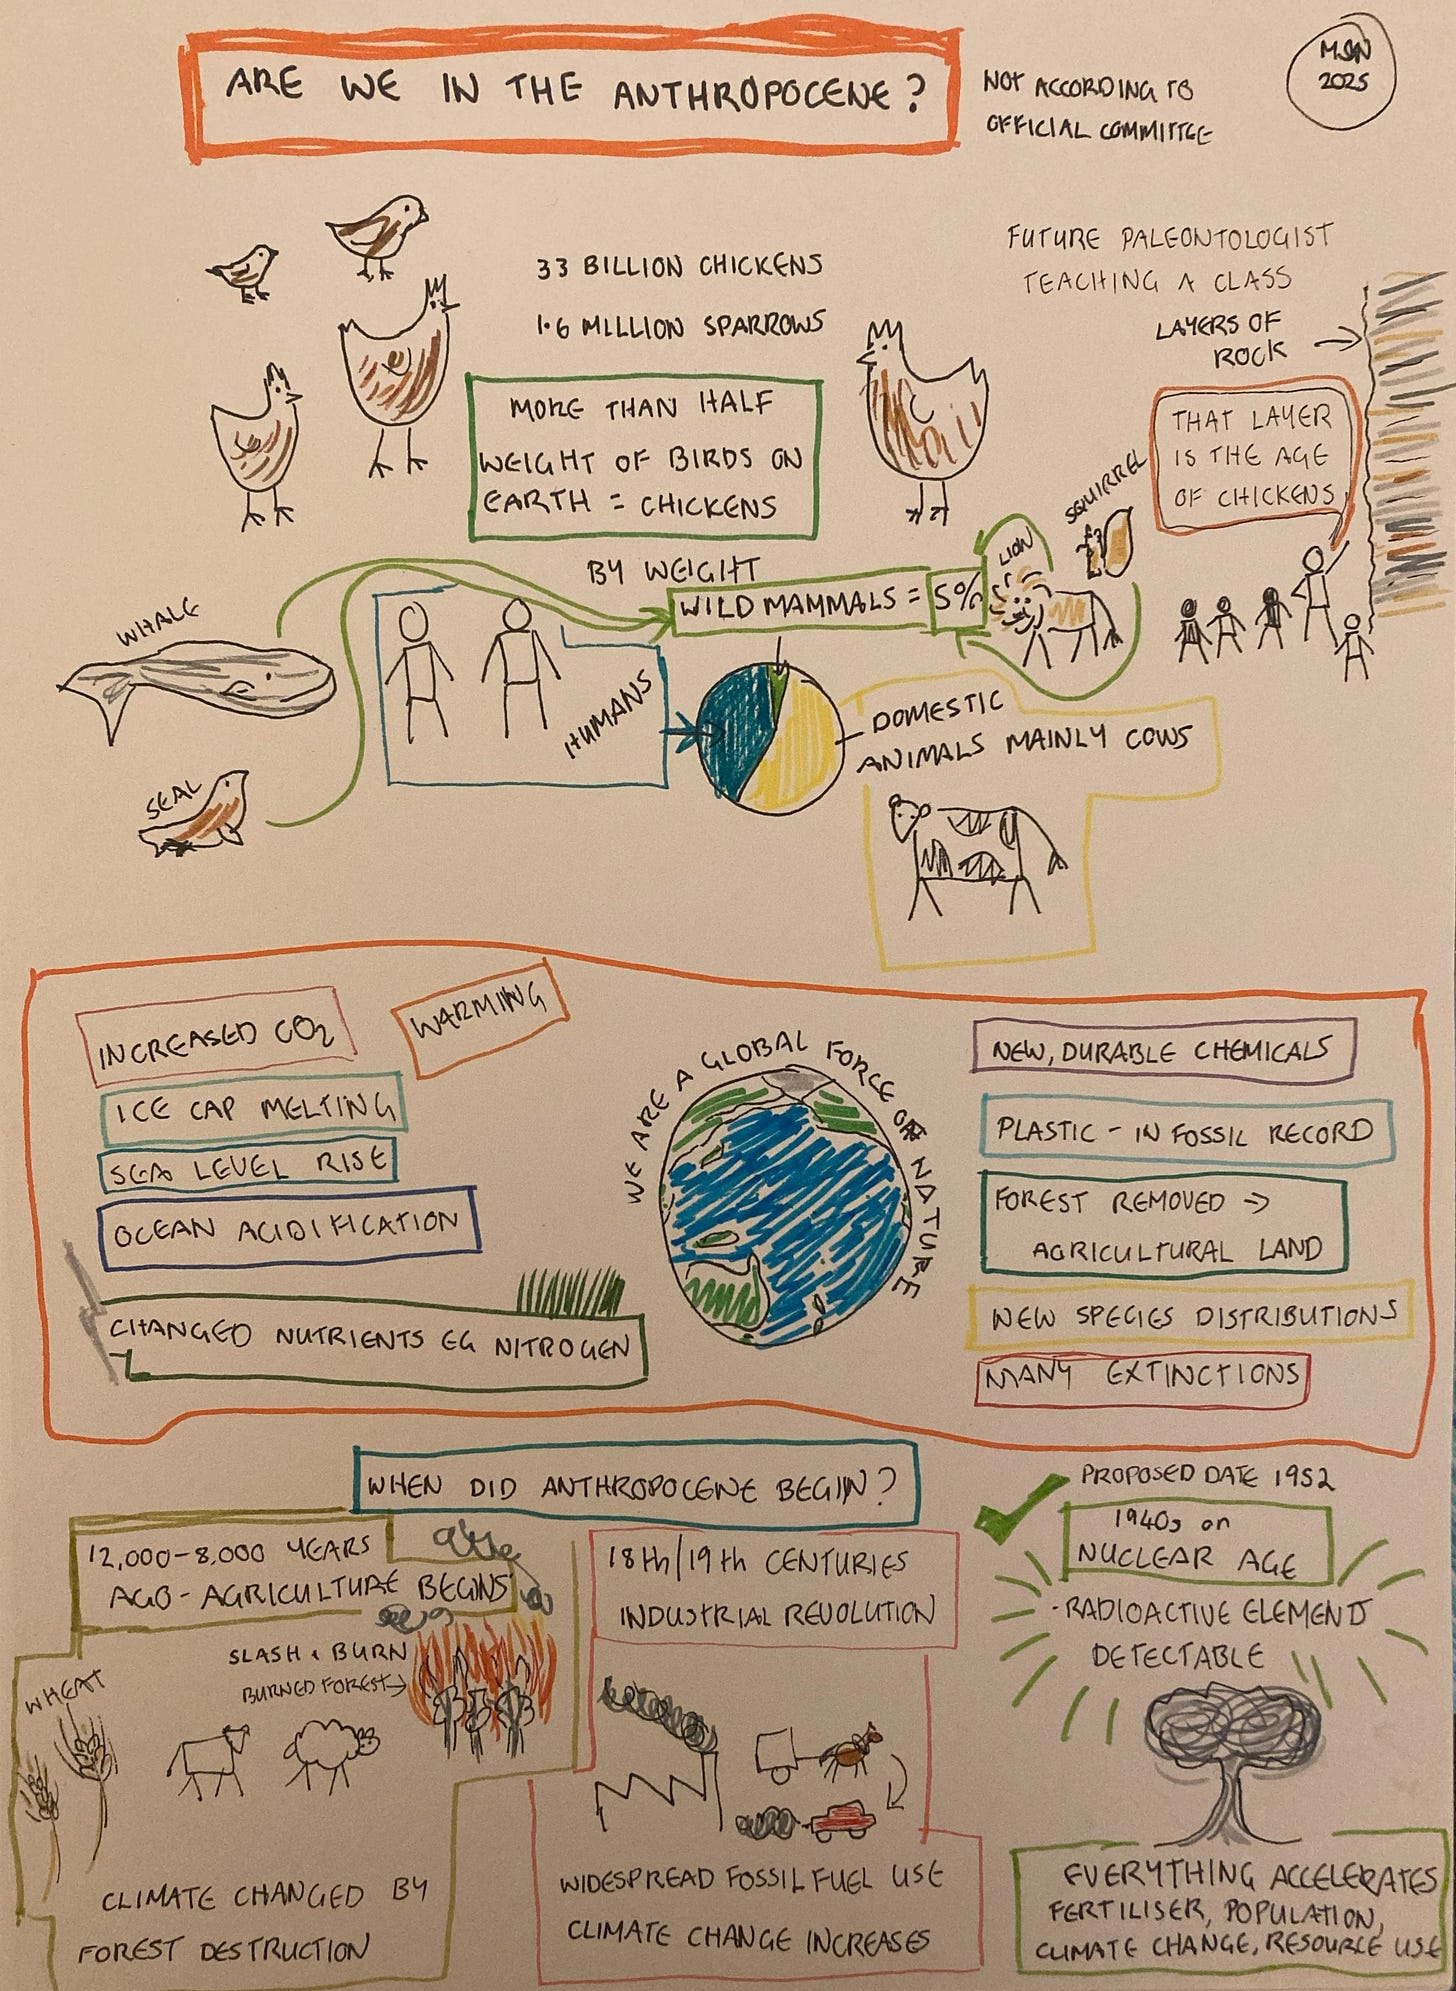 ARE WE IN THE ANTHROPOCENE?
NOT ACCORDING TO
OFFICIAL COMMITTEE
MJN
2025
33 BILLION CHICKENS
1.6 MILLION SPARROWS
MORE THAN HALF
WEIGHT OF BIRDS ON
EARTH = CHICKENS
FUTURE PALEONTOLOGIST
TEACHING A CLASS
LAYERS OF
ROCK →
THAT LAYER
IS THE AGE
OF CHICKENS
BY WEIGHT
WILD MAMMALS = 5%
LION
SQUIRREL
WHALE
SEAL
HUMANS
DOMESTIC
ANIMALS MAINLY COWS
INCREASED CO2
WARMING
ICE CAP MELTING
SEA LEVEL RISE
OCEAN ACIDIFICATION
CHANGED NUTRIENTS EG NITROGEN
WE ARE A GLOBAL FORCE OF NATURE
NEW, DURABLE CHEMICALS
PLASTIC - IN FOSSIL RECORD
FOREST REMOVED →
AGRICULTURAL LAND
NEW SPECIES DISTRIBUTIONS
MANY EXTINCTIONS
WHEN DID ANTHROPOCENE BEGIN?
12,000-8,000 YEARS
AGO - AGRICULTURE BEGINS
SLASH & BURN
BURNED FOREST →
WHEAT
CLIMATE CHANGED BY
FOREST DESTRUCTION
18th/19th CENTURIES
INDUSTRIAL REVOLUTION
WIDESPREAD FOSSIL FUEL USE
CLIMATE CHANGE INCREASES
PROPOSED DATE 1952
1940s on
NUCLEAR AGE
- RADIOACTIVE ELEMENTS
DETECTABLE
EVERYTHING ACCELERATES
FERTILISER, POPULATION,
CLIMATE CHANGE, RESOURCE USE